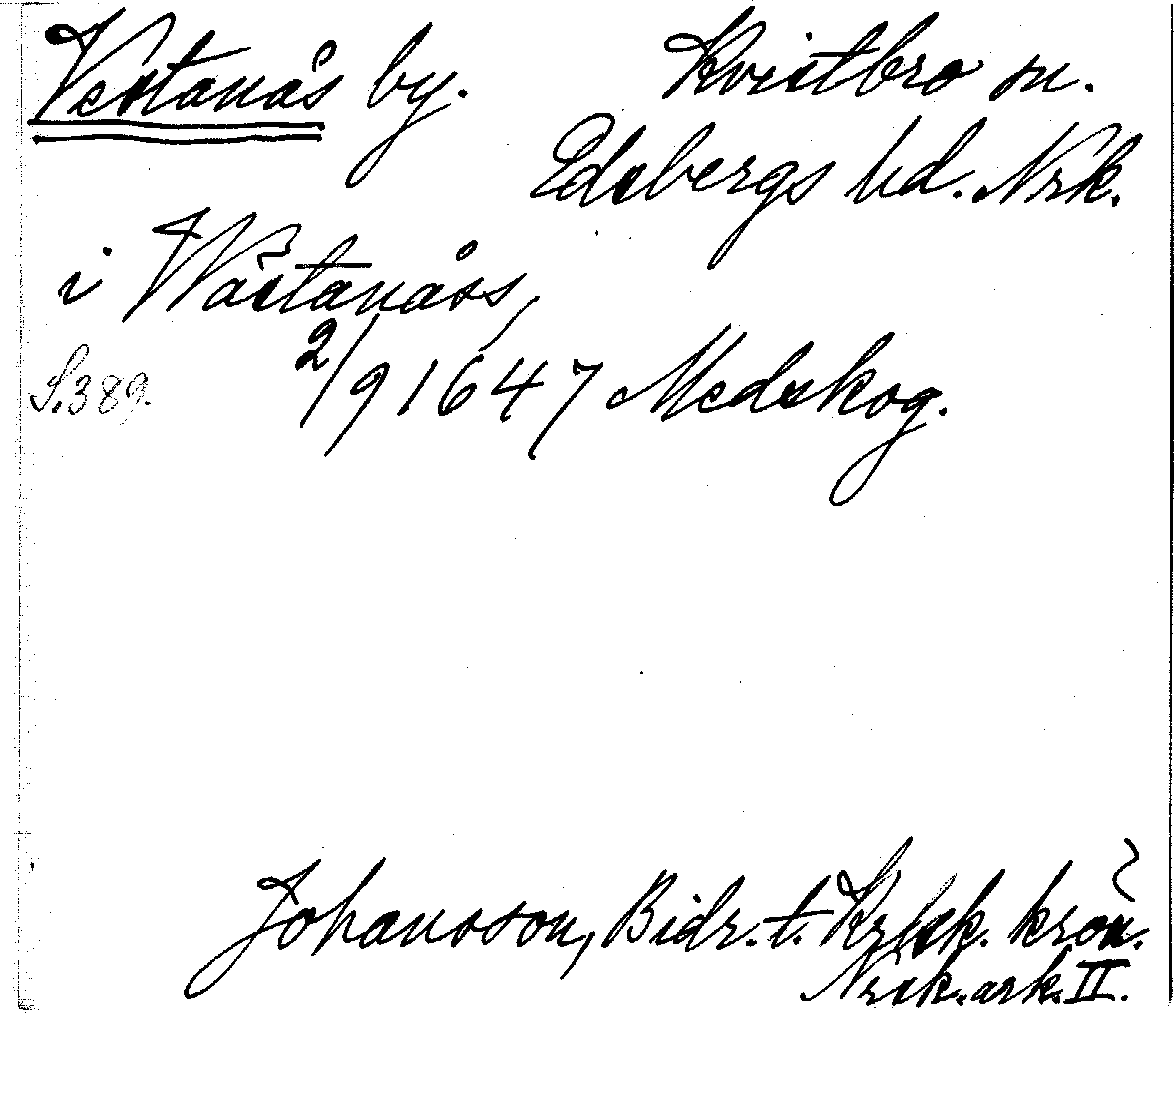 Vestanås by. Kvistbro sn.
Edsbergs hd. Nrk.
i Wästanåss,
S. 389. 2/9 1647 Medskog.
Johansson, Bidr. t. Krlsk. krön.
Nrsk. ark. II.